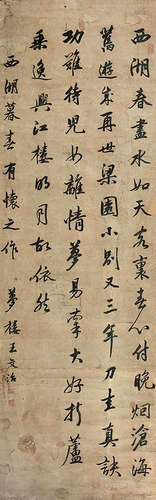 西湖春盡水如天客裏春心付晚烟滄海
舊遊成再世梁園小別又三年刀圭真訣
功難待兒女離情夢易牽大好打蘆
乘逸興江樓明月故依然
西湖暮春有懷之作 夢樓王文治